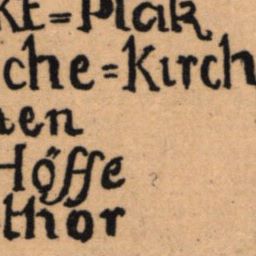 kt=Plak
che=Kirch
en
Höffe
thor